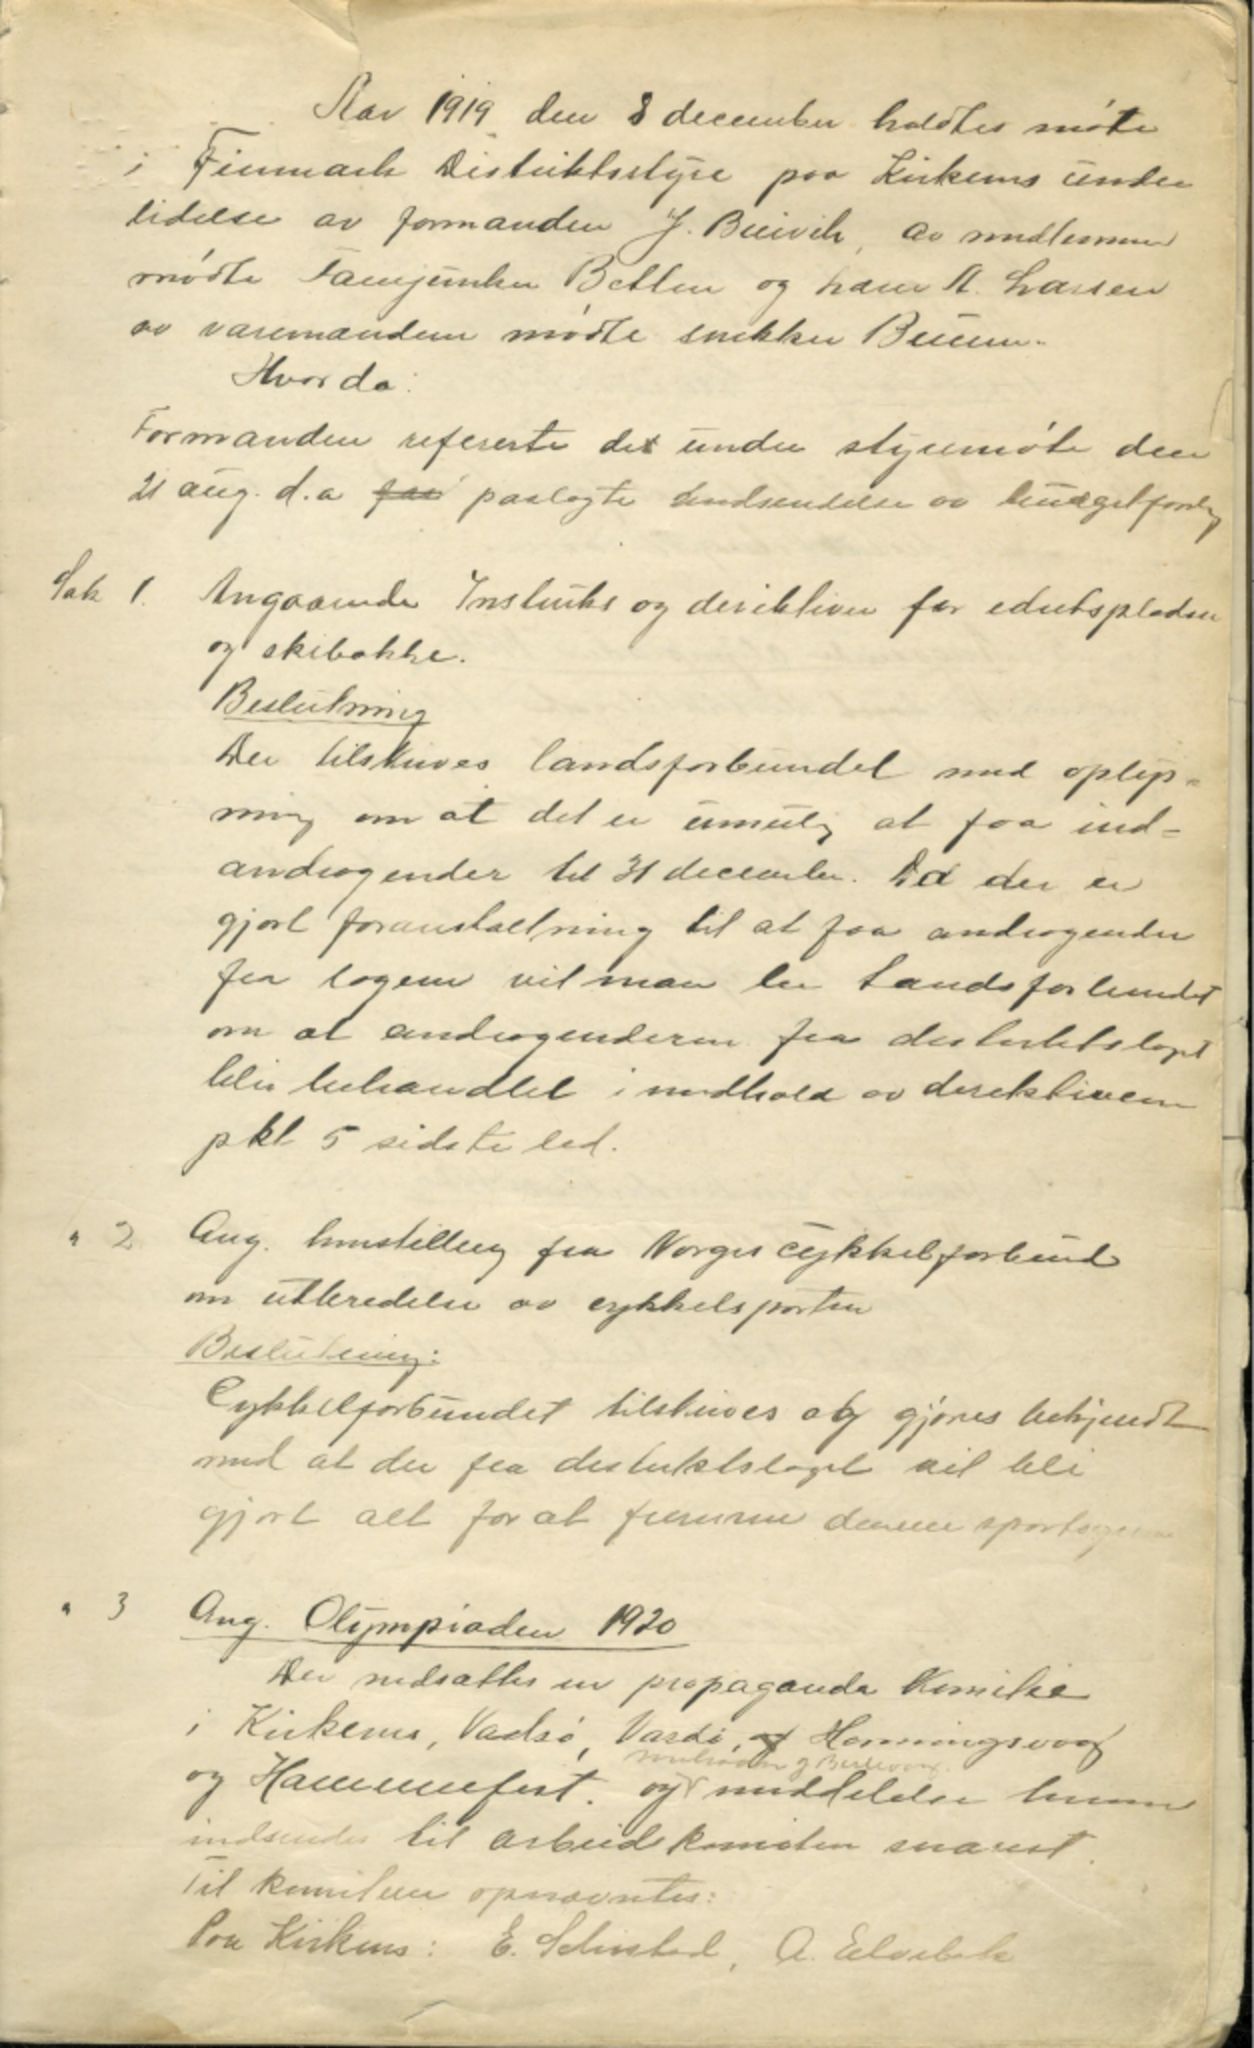 Aar 1919 den 8 december holdtes møte
i Finmark Distriktsstyre paa Kirkenes under
ledelse av formanden J. Breivik, av medlemmer
mødte Fanejunker Betten og Hans A. Larsen
av varemændene mødte snekker Buum.
Hvor da:
Formanden refererte det under styremøte den
21 aug. d.a paalagte indsendelse av budgetforslag
Sak 1. Angaaende Instruks og direktiver for idrætspladser
og skibakke.
Beslutning
Der tilskrives landsforbundet med oplys-
ning om at det er umulig at faa ind-
andragender til 31 december. Da der er
gjort foranstaltning til at faa andragender
fra lagene vil man be Landsforbundet
om at andragenderne fra distriktslaget
blir behandlet i medhold av direktivene
pkt 5 sidste led.
" 2 Ang. henstilling fra Norges Cykkelforbund
om utbredelse av cykkelsporten
Beslutning:
Cykkelforbundet tilskrives og gjøres bekjendt
med at der fra distriktslaget vil bli
gjort alt for at fremme denne sportsgren
" 3 Ang. Olympiaden 1920
Der nedsættes en propaganda komite
i Kirkenes, Vadsø, Vardø, Honningsvaag
Mehavn og Berlevaag.
og Hammerfest. og meddelelse herom
indsendes til arbeidskomiteen snarest.
Til komiteen opnævntes:
Paa Kirkenes: E. Schistad, A. Elvebak